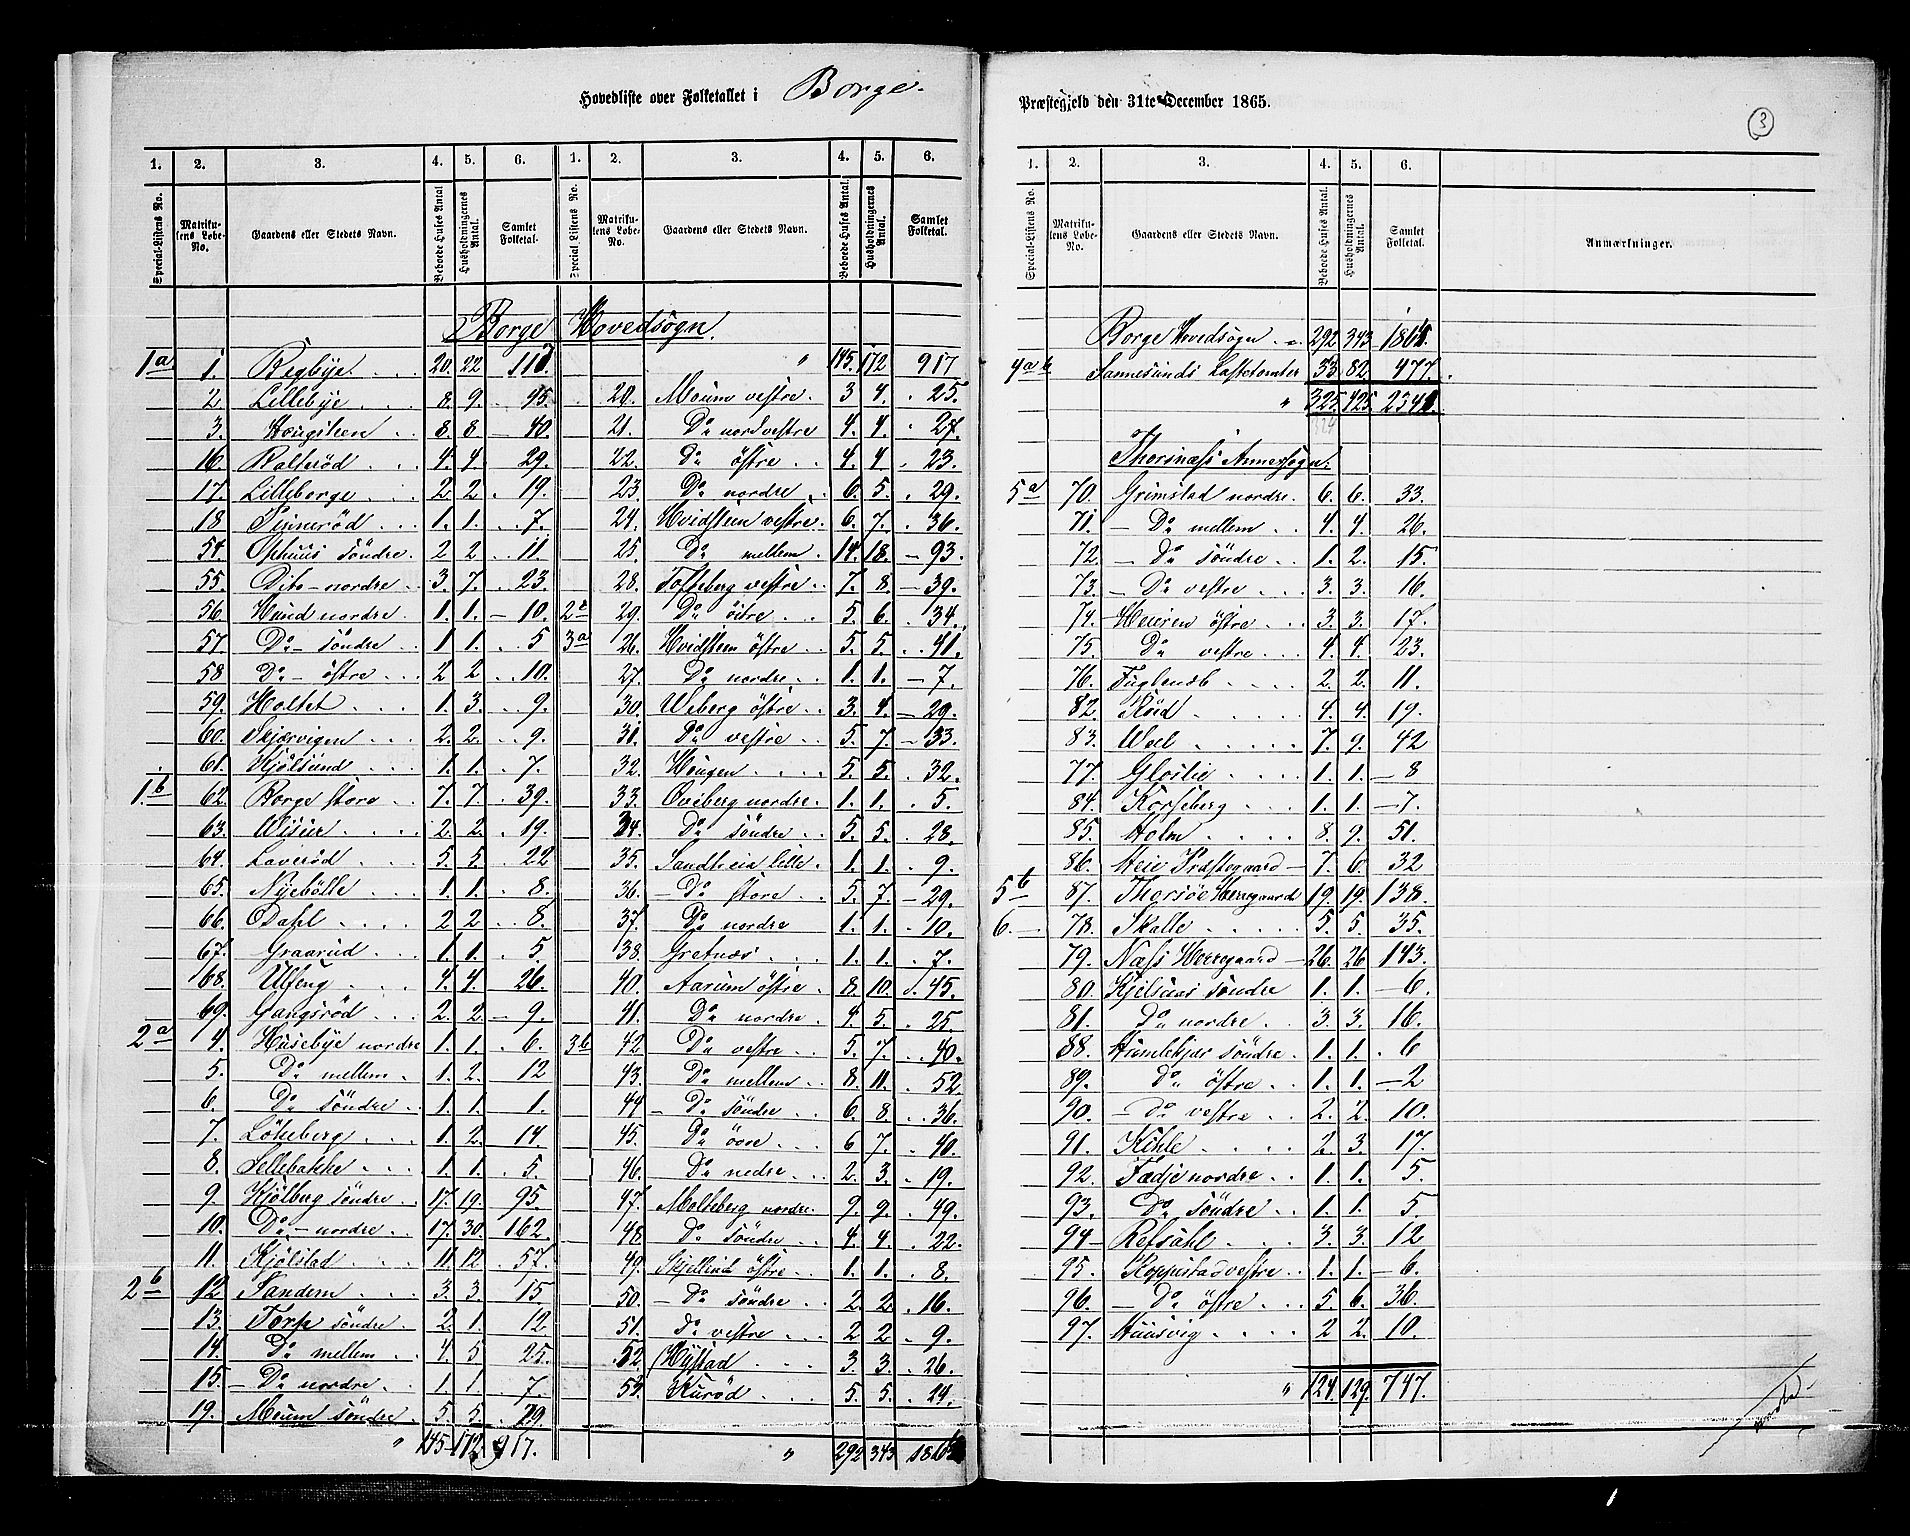 Hovedliste over Folketallet i Borge.
1. 2. 3. 4. 5. 6. 1. 2. 3. 4. 5. 6.
Special-Listens No. Matrikulens Løbe-No. Gaardens eller Stedets Navn. Beboede Huses Antal Husholdningernes Antal. Samlet Folketal. Special Listens No. Matrikulens Løbe-No. Gaardens eller Stedets Navn. Beboede Huses Antal. Husholdningernes Antal. Samlet Folketal.
Borge Hovedsogn.
1a 1. Begbye. 20. 22
2. Lillebye 8. 9. 45.
3. Hougsteen 8. 8. 40.
16. Ralterød 4. 4. 29.
17. Lilleborge 2. 2. 19.
18 1. 1. 7.
54. Ophuus söndre. 2 2 11.
55. Dito nordre 3. 7. 23.
56. Hund nordre 1. 1. 10.
57. Do söndre 1 1. 5
58 Do östre 2 2 10.
59. Holtet 1. 3. 9.
60. Skjærvigen 2. 2. 9.
61. Kjölsund 1. 1. 7.
1b 62. Borge store 7. 7. 39.
63. Visur 2. 2. 19.
64. Laverød 5. 5. 22
65. Nyebölle 1. 1. 8.
66. Odahl 2 2 8.
67. Graarud 1. 1. 5.
68. Ulfeng 4. 4. 26.
69. Gangsröd 2. 2. 9.
2a 4. Husebye nordre 1. 1. 6.
5. Do mellem 1. 2. 12
6. Do söndre 1. 1. 1.
7. Lökeberg 1. 2. 14.
8. Lellebakke 1. 1. 5.
9. Kjölberg söndre 17. 19. 95.
10. Do nordre 17. 30. 162.
11. Kjölstad 11. 12. 57.
2b 12. Sandem 3. 3. 15
13. Torp söndre. 2. 1. 12.
14. Do mellem 4. 5 25.
15. Do nordre. 1. 1. 7.
19. Moum söndre. 5. 5. 29.
" 145 172. 917.
" 145. 172 917
20. Moum vestre. 3 4. 25.
21. Do nordvestre 4. 4. 27.
22. Do östre 4. 4. 23.
23. Do nordre 6. 5. 29.
24. Hvidsteen vestre. 6. 7. 36.
25. Do mellem. 14. 18. 93.
28. Tofteberg vestre 7. 8. 39.
29. Do östre 5. 6. 34.
3a 26. Hvidsteen östre 5. 5. 41.
27. Do nordre 1. 1. 7.
30. Viberg östre 3. 4. 29.
31. Do vestre 5. 7. 33.
32. Hougen 5. 5. 32.
33. Oveberg nordre. 1. 1. 5.
34. Do söndre 5. 5. 28.
35. Sandheia Lille 1. 1. 9.
36. Do store 5. 7. 29.
37. Do nordre 1. 1. 10.
38. Gretnæs 1. 1. 7.
40. Aarum östre 8. 10. 45.
41. Do nordre 4. 5. 25.
3b 42. Do vestre 5. 7. 40.
43. Do mellem 8. 11. 52.
44 Do söndre 6. 8. 36.
45. Do övre 6 7. 40.
46. Do nedre 2. 3. 19.
47. Molteberg nordre. 9. 9. 49.
48. Do söndre 4. 4. 22.
49. Skjellin östre 1. 1. 8.
50. Do söndre 2. 2. 16.
51. Do vestre 2 2. 9.
52. Hystad 3. 3. 26.
53. Kuröd 5. 5. 24.
" 292 343
Præstegjeld den 31te December 1865.
3
1. 2. 3. 4. 5. 6.
Special-Listens No. Matrikulens Løbe-No. Gaardens eller Stedets Navn. Beboede Huses Antal. Husholdningernes Antal. Samlet Folketal. Anmærkninger.
Borge Hovedsogn 292 343
4a b Sannesunds Ladetomter 33 82 477.
" 325. 425.
324
Thorsnæss Annexsogn.
5a 70. Grimstad nordre. 6. 6. 33.
71. Do mellem 4. 4. 26.
72. Do söndre 1. 2. 15.
73. Do vestre 3. 3. 16.
74. Heieren östre 3. 3. 17.
75. Do vestre 4. 4. 23.
76. Fuglevik 2. 2. 11.
82. Röd 4. 4. 19.
83. Væl 7. 9. 42
77. Gloslie 1. 1. 8
84. Korseberg 1. 1. 7.
85. Holm 8. 9. 51.
86. Heie Præstegaard 7. 6. 32
5b 87. Thorsöe Herregaard 19. 19. 138.
6. 78. Skalle 5. 5. 35.
79. Næss Herregaard 26. 26 143.
80. Kjelsnæs söndre 1. 1. 6.
81. Do nordre 3. 3. 16.
88. Humlekjær söndre. 1. 1. 6
89. Do östre 1. 1. 2
90. Do vestre 2. 2. 10.
91. Kihle 2. 3. 17.
92. Fædje nordre 1. 1. 5.
93. Do söndre 1. 1. 5
94 Refsahl 3. 3. 12
95. Roppestad vestre 1. 1. 6.
96. Do östre 5. 6. 36.
97. Huusvig 2 2. 10.
" 124. 129. 747.